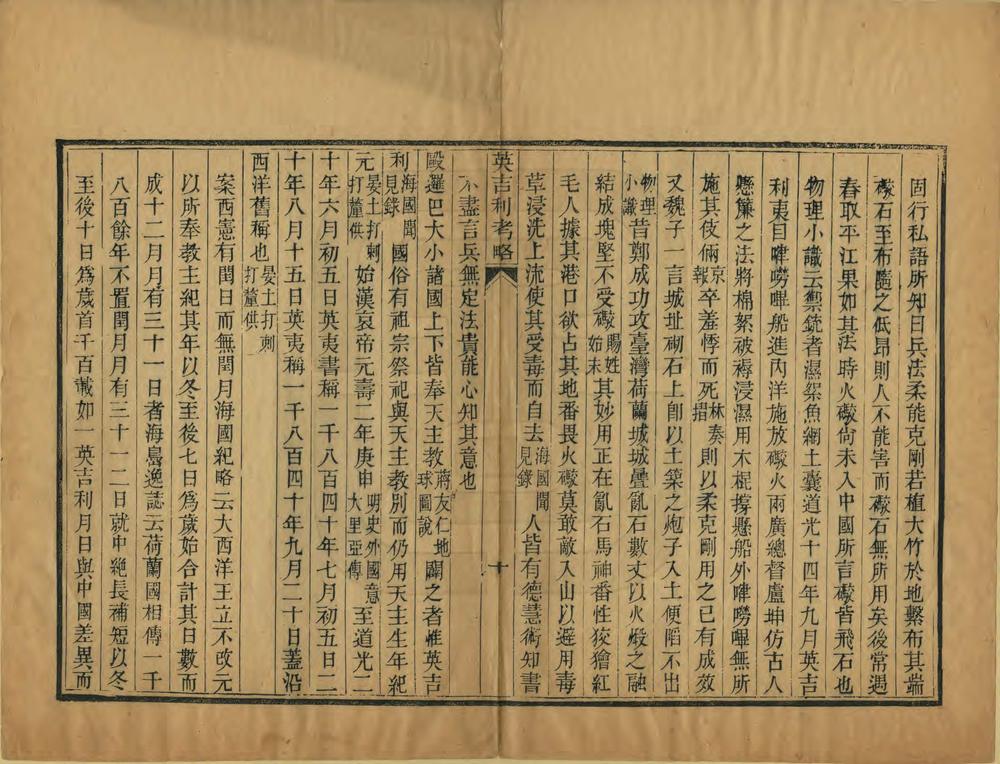 固行私語所知曰兵法柔能克剛若植大竹於地繫布其端
礮石至布隨之低昂則人不能害而礮石無所用矣後常遇
春取平江果如其法時火礮尚未入中國所言礮皆飛石也
物理小識云禦銃者濕絮魚網土囊道光十四年九月英吉
利夷目嘩嘮嗶船進內洋施放礮火兩廣總督盧坤仿古人
懸簾之法將棉絮被褥浸濕用木棍撐懸船外嘩嘮嗶無所
施其伎倆京報卒羞悸而死林奏摺則以柔克剛用之已有成效
又魏子一言城址砌石上卽以土築之炮子入土便陷不出
物理小識昔鄭成功攻臺灣荷蘭城城疊亂石數丈以火煅之融
結成塊堅不受礮賜姓始末其妙用正在亂石馬神番性狡獪紅
毛人據其港口欲占其地番畏火礮莫敢敵入山以避用毒
草浸洗上流使其受毒而自去海國聞見錄人皆有德慧術知書
英吉利考略
十
不盡言兵無定法貴能心知其意也
毆邏巴大小諸國上下皆奉天主教蔣友仁地球圖說闢之者惟英吉
利海國聞見錄國俗有祖宗祭祀與天主教別而仍用天主生年紀
元晏士打剌打釐供始漢哀帝元壽二年庚申明史外國意大里亞傳至道光二
十年六月初五日英夷書稱一千八百四十年七月初五日二
十年八月十五日英夷稱一千八百四十年九月二十日蓋沿
西洋舊稱也晏士打剌打釐供
案西憲有閏日而無閏月海國紀略云大西洋王立不改元
以所奉教主紀其年以冬至後七日爲歲始合計其日數而
成十二月月有三十一日者海島逸誌云荷蘭國相傳一千
八百餘年不置閏月月有三十一二日就中絶長補短以冬
至後十日爲歲首千百載如一英吉利月日與中國差異而